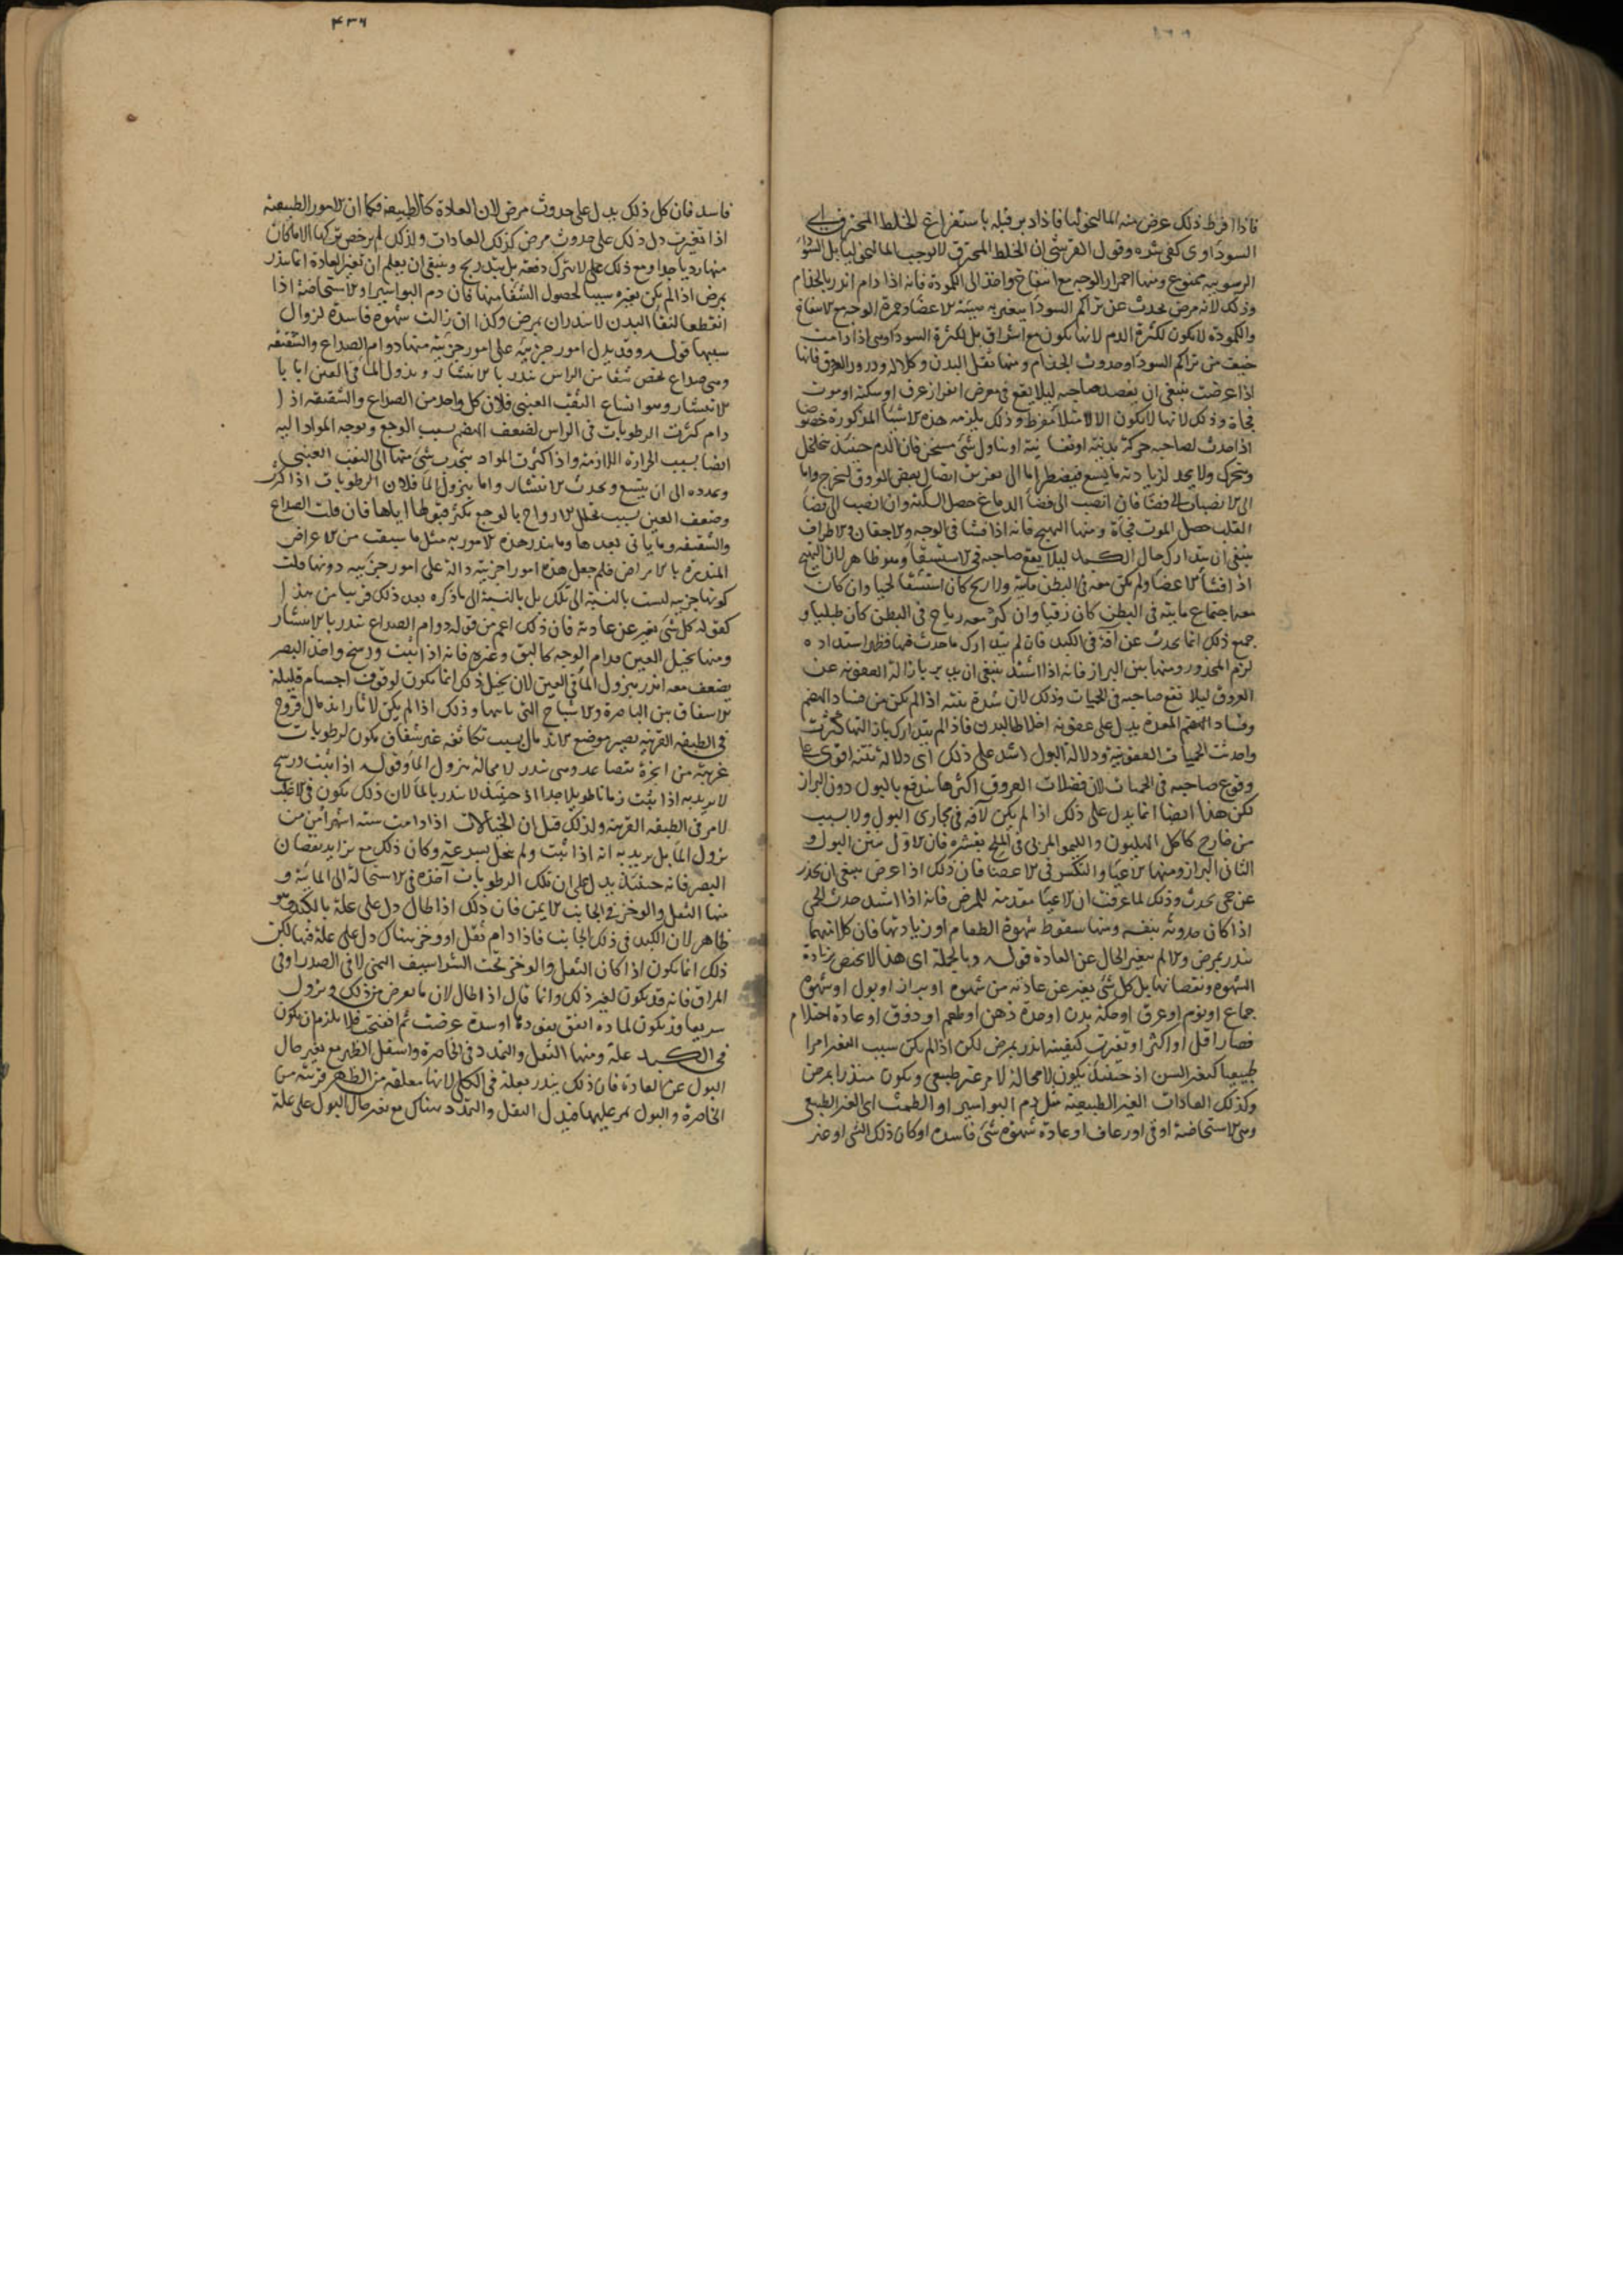 فاذا افرط ذلك عرض منه الماليخوليا فاذا دبر قبله باستفراغ الخلط المحترق اى
السوداوى كفى شره وقول القرشى ان الخلط المحترق لا يوجب الماليخوليا بل السودا
الرسوبية ممنوع ومنها احمرار الوجه مع انتفاخ واخذ الى الكمودة فانه اذا دام انذر بالجذام
وذلك لانه مرض يحدث عن تراكم السودا يتغير به هيئة الاعضا وحمرة الوجه مع الانتفاخ
والكمودة لا يكون لكثرة الدم لانها يكون مع اشراق بل لكثرة السودا وهى اذا دامت
خيف من تراكم السودا وحدوث الجذام ومنها ثقل البدن وكلاله ودرور العرق فانها
اذا عرضت ينبغى ان يفصد صاحبه ليلا يقع فى معرض انفزار عرق او سكتة او موت
فجأة وذلك لانها لا يكون الا لامتلا مفرط وذلك يلزمه هذه الاشيا المذكورة خصوصا
اذا حدث لصاحبه حركة بدنية او نفسانية او تناول شئ مسخن فان الدم حينئذ يتخلخل
ويتحرك ولا يجد لزيادته ما يسع فيضطر اما الى تفريق اتصال بعض العروق ليخرج واما
الى الانصباب الى فضا فان انصب الى فضا الدماغ حصل السكتة وان انصب الى فضا
القلب حصل الموت فجأة ومنها التهبج فانه اذا فشا فى الوجه والاجفان والاطراف
ينبغى ان يتدارك حال الكبد ليلا يقع صاحبه فى الاستسقا وهو ظاهر لان التهبج
اذا فشا الاعضا ولم يكن معه فى البطن مائية ولا ريح كان استسقا لحميا وان كان
معه اجتماع مائية فى البطن كان زقيا وان كثر معه رياح فى البطن كان طبليا و
جميع ذلك انما يحدث عن آفة فى الكبد فان لم يتدارك ما حدث فيها فظهر استداده
لزم المحذور ومنها نتن البراز فانه اذا اشتد ينبغى ان يدبر بازالة العفونة عن
العروق ليلا يقع صاحبه فى الحميات وذلك لان شدة نتنه اذا لم يكن من فساد الهضم
وفساد الهضم المعدة يدل على عفونة اخلاط البدن فاذا لم يتدارك بازالتها كثرت
واحدثت الحميات العفونية ودلالة البول اشد على ذلك اى دلالة نتنه اقوى على
وقوع صاحبه فى الحميات لان فضلات العروق اكثرها يندفع بالبول دون البراز
لكن هذا ايضا انما يدل على ذلك اذا لم يكن لآفة فى مجارى البول ولا بسبب
من خارج كاكل الهليون والليمو المربى فى الملح بقشره فان الاول ينتن البول و
الثانى البراز ومنها الاعيا والتكسر فى الاعضا فان ذلك اذا عرض ينبغى ان يحذر
عن حمى يحدث وذلك لما عرفت ان الاعيا مقدمة للمرض فانه اذا اشتد حدث الحمى
اذا كان حدوثه بنفسه ومنها سقوط شهوة الطعام او زيادتها فان كلا منهما
ينذر بمرض والا لم يتغير الحال عن العادة قوله وبالجملة اى هذا لا يختص بزيادة
الشهوة ونقصانها بل كل شئ يتغير عن عادته من شهوة او براز او بول او شهوة
جماع او نوم او عرق او حكة بدن او حدة ذهن او طعم او ذوق او عادة احتلام
فصار اقل او اكثر او تغيرت كيفيته انذر بمرض لكن اذا لم يكن سبب التغير امرا
طبيعيا كتغير السن اذ حينئذ يكون لا محالة لامر غير طبيعى ويكون منذرا بمرض
وكذلك العادات الغير الطبيعية مثل دم البواسير او الطمث اى الغير الطبيعى
وهى الاستحاضة او قى او رعاف او عادة شهوة شئ فاسده او كان ذلك الشى او غير
فاسد فان كل ذلك يدل على حدوث مرض لان العادة كالطبيعة فكما ان الامور الطبيعية
اذا تغيرت دل ذلك على حدوث مرض كذلك العادات ولذلك لم يرخص تركها الا ما كان
منها رديا جدا ومع ذلك على لا يترك دفعة بل بتدريج وينبغى ان يعلم ان تغير العادة انما ينذر
بمرض اذا لم يكن تغيره سببا لحصول الشفا منها فان دم البواسير او الاستحاضة اذا
انقطعا لنقا البدن لا ينذران بمرض وكذا ان زالت شهوة فاسدة لزوال
سببها قوله وقد يدل امور جزئية على امور جزئية منها دوام الصداع والشقيقة
وهى صداع يخص شقا من الراس ينذر بالانتشار وبنزول الما فى العين اما با
لانتشار وهو اتساع الثقب العنبى فلان كل واحد من الصداع والشقيقة اذا
دام كثرت الرطوبات فى الراس لضعف الهضم بسبب الوجع وتوجه المواد اليه
ايضا بسبب الحرارة اللازمة واذا كثرت المواد ينجذب شئ منها الى الثقب العنبى
وتمدده الى ان يتسع ويحدث الانتشار واما بنزول الما فلان الرطوبات اذا كثرت
وضعف العين بسبب تحلل الارواح بالوجع يكثر قبولها اياها فان قلت الصداع
والشقيقة وما يأتى بعدها وما ينذر هذه الامور به مثل ما سبق من الاعراض
المنذرة بالامراض فلم جعل هذه امورا جزئية دالة على امور جزئية دونها قلت
كونها جزئية ليست بالنسبة الى تلك بل بالنسبة الى ما ذكره بعد ذلك قريبا من هذا
كقوله كل شئ تغير عن عادته فان ذلك اعم من قوله دوام الصداع ينذر بالانتشار
ومنها تخيل العين قدام الوجه كالبق وغيره فانه اذا ثبت ورسخ واخذ البصر
يضعف معه انذر بنزول الما فى العين لان تخيل ذلك انما يكون لوقوف اجسام قليلة
الاشفاف بين الباصرة والاشباح التى يأتيها وذلك اذا لم يكن لآثار اندمال قروح
فى الطبقة القرنية يصير موضع الاندمال بسبب تكاثفه غير شفاف يكون لرطوبات
غريبة من ابخرة يتصاعد وهى ينذر لا محالة بنزول الما وقوله اذا ثبت ورسخ
لا يريد به اذا ثبت زمانا طويلا جدا اذ حينئذ لا ينذر بالما لان ذلك يكون فى الاغلب
لامر فى الطبقة القرنية ولذلك قيل ان الخيالات اذا دامت ستة اشهر امن من
نزول الما بل يريد به انه اذا ثبت ولم ينحل بسرعة وكان ذلك مع تزايد نقصان
البصر فانه حينئذ يدل على ان تلك الرطوبات آخذة فى الاستحالة الى المائية و
منها الثقل والوخز فى الجانب الايمن فان ذلك اذا طال دل على علة بالكبد وهو
ظاهر لان الكبد فى ذلك الجانب فاذا دام ثقل او وخز هناك دل على علة فيها لكن
ذلك انما يكون اذا كان الثقل والوخز تحت الشراسيف اليمنى لا فى الصدر او فى
المراق فانه قد يكون لغير ذلك وانما قال اذا طال لان ما يعرض من ذلك ويزول
سريعا قد يكون لمادة اتفق نفوذها او سدة عرضت ثم انفتحت فلا يلزم ان يكون
فى الكبد علة ومنها الثقل والتمدد فى الخاصرة واسفل الظهر مع تغير حال
البول عن العادة فان ذلك ينذر بعلة فى الكلى لانها معلقة من الظهر قريبة من
الخاصرة والبول يمر عليها فيدل الثقل والتمدد هناك مع تغير حال البول على علة